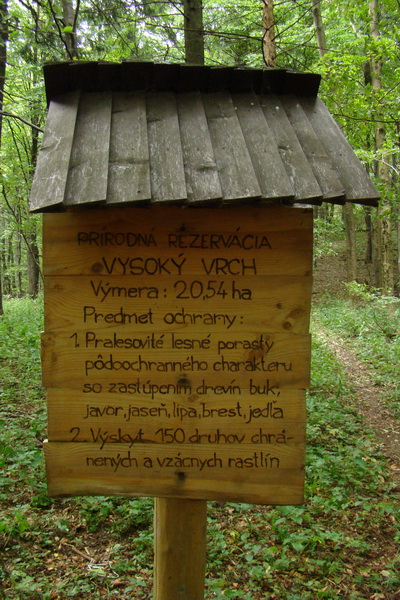 PRÍRODNÁ REZERVÁCIA
VYSOKÝ VRCH
Výmera : 20,54 ha
Predmet ochrany :
1. Pralesovité lesné porasty
pôdoochranného charakteru
so zastúpením drevín buk,
javor, jaseň, lipa, brest, jedľa
2. Výskyt 150 druhov chrá-
nených a vzácnych rastlín